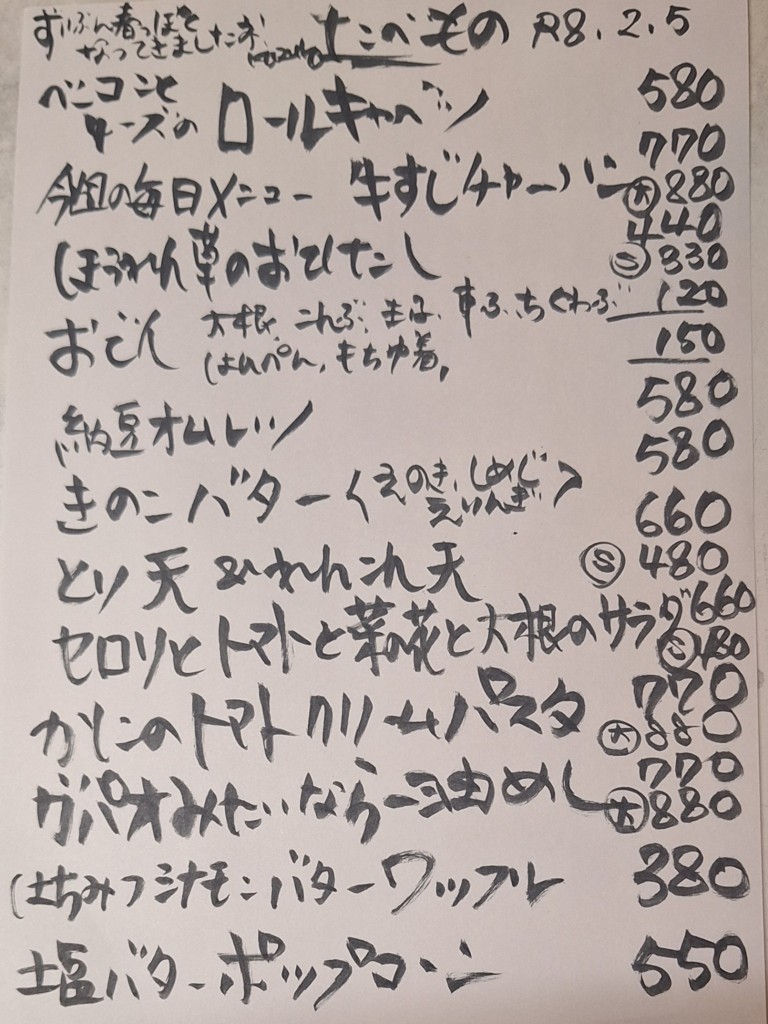 ずいぶん春っぽく
なってきましたね たべもの R8.2.5
ベーコンと
チーズの ロールキャベツ 580
今週の毎日メニュー 牛すじチャーハン 770
大 880
ほうれん草のおひたし 440
S 330
おでん 大根、こんぶ、玉子、車ふ、ちくわぶ 120
はんぺん、もち巾着、 150
納豆オムレツ 580
きのこバター(えのき、しめじ 580
えりんぎ)
とり天&れんこん天 660
S 480
セロリとトマトと菜の花と大根のサラダ 660
S 480
かにのトマトクリームパスタ 770
大 880
ガパオみたいなラー油めし 770
大 880
はちみつシナモンバターワッフル 380
塩バターポップコーン 550